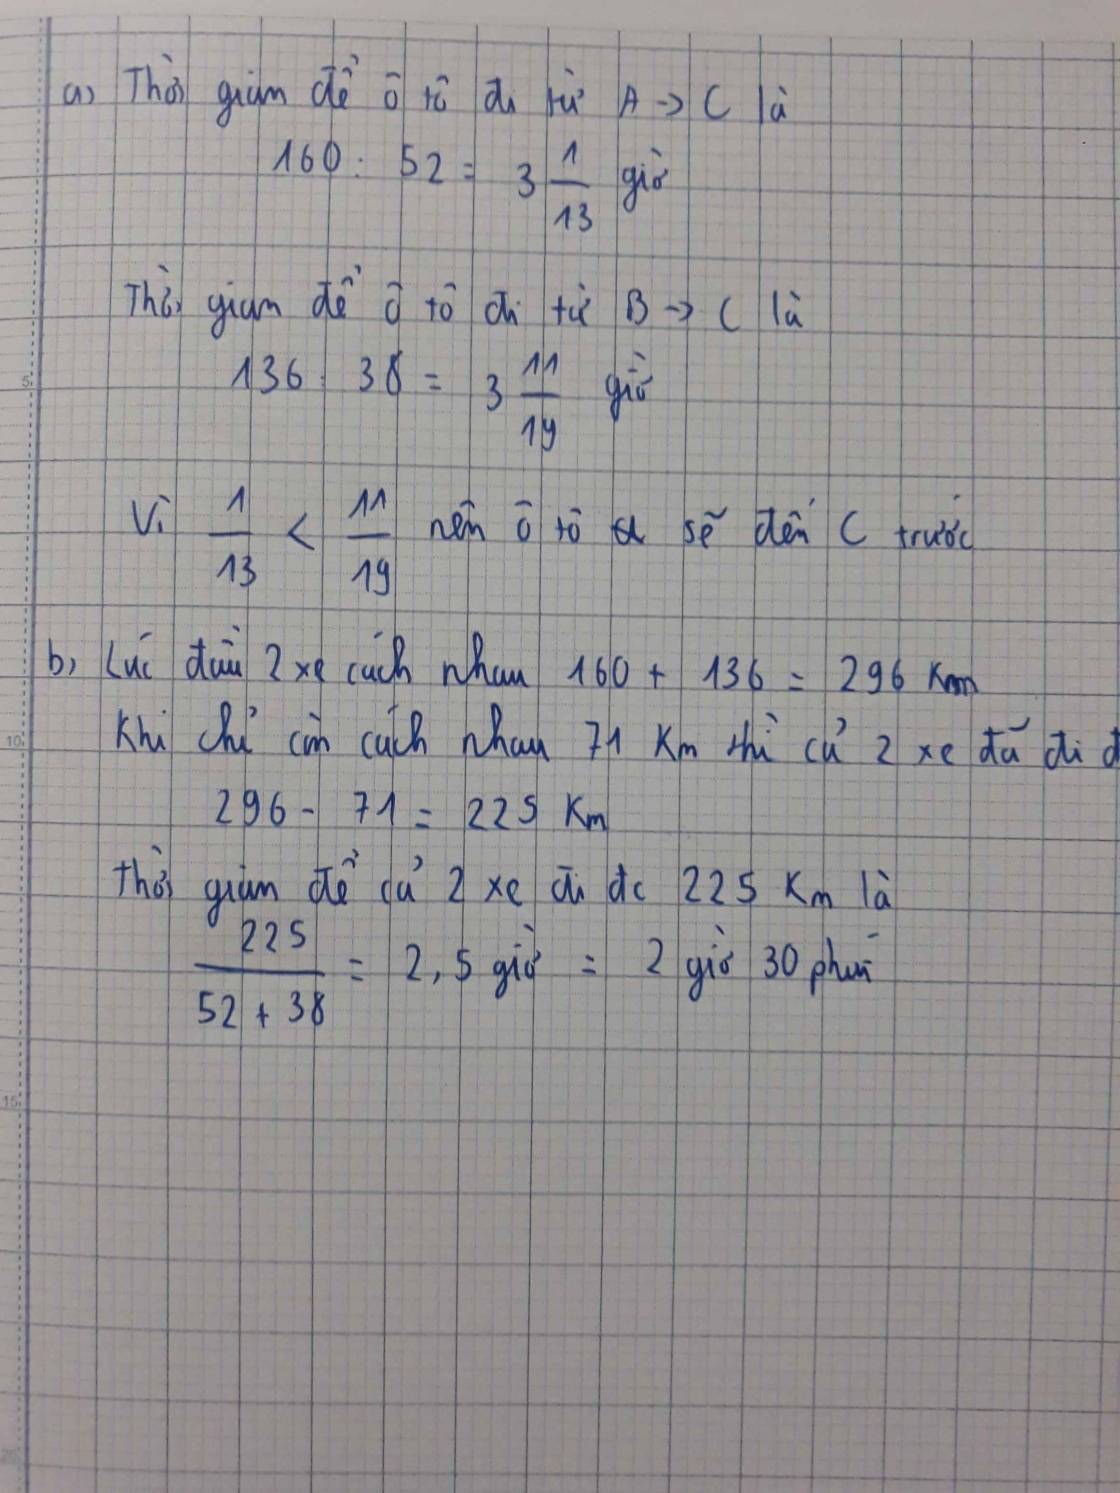 a, Thời gian để ô tô đi từ A → C là
160 : 52 = 3 1/13 giờ
Thời gian để ô tô đi từ B → C là
136 : 38 = 3 11/19 giờ
Vì 1/13 < 11/19 nên ô tô a sẽ đến C trước
b, Lúc đầu 2 xe cách nhau 160 + 136 = 296 Km
Khi chỉ còn cách nhau 71 Km thì cả 2 xe đã đi
296 - 71 = 225 Km
Thời gian để cả 2 xe đi đc 225 Km là
225/(52 + 38) = 2,5 giờ = 2 giờ 30 phút
5
10
15
20